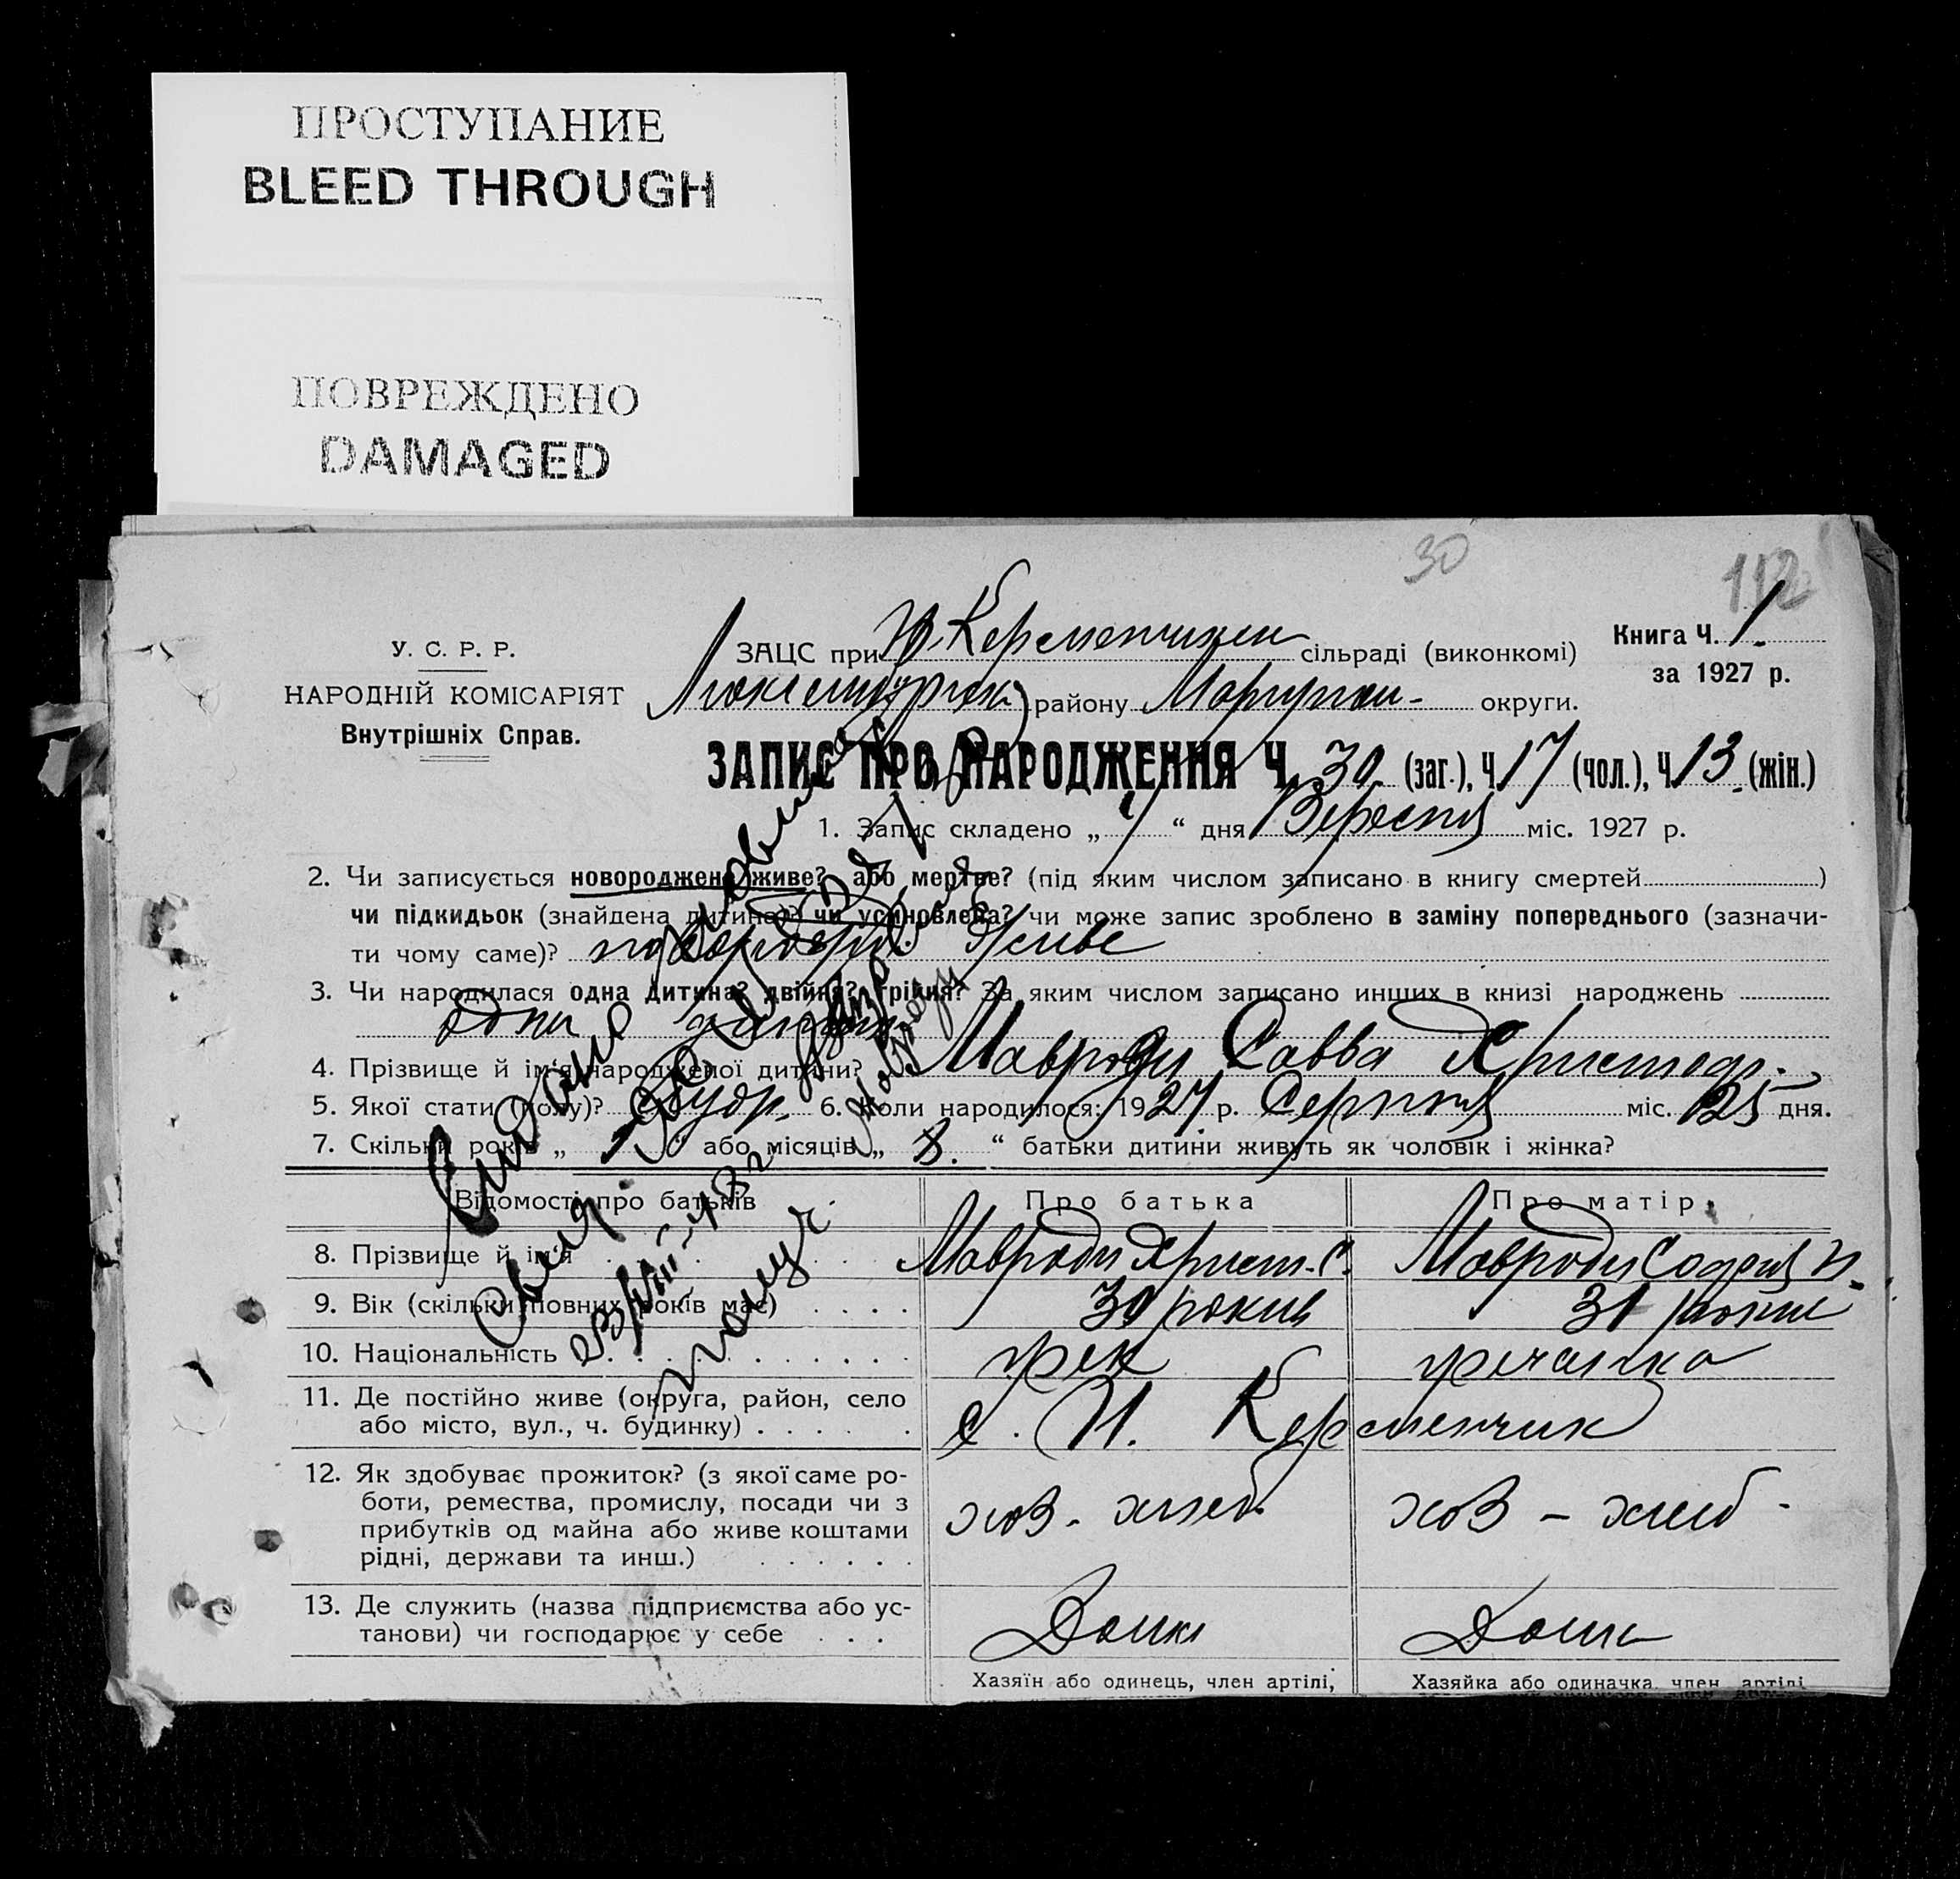 ПРОСТУПАНИЕ
BLEED THROUGH
ПОВРЕЖДЕНО
DAMAGED
30
112
У. С. Р. Р.
НАРОДНІЙ КОМІСАРІЯТ
Внутрішніх Справ.
ЗАЦС при Н. Керменчикск сільраді (виконкомі)
Книга Ч. 1.
за 1927 р.
району Маріупол- округи.
ЗАПИС ПРО НАРОДЖЕННЯ Ч. 30 (заг.), Ч 17 (чол.), Ч 13 (жін.)
1. Запис складено „ 1 “ дня Вересня міс. 1927 р.
2. Чи записується новороджене живе? або мертве? (під яким числом записано в книгу смертей )
чи підкидьок (знайдена дитина)? чи усиновлена? чи може запис зроблено в заміну попереднього (зазначи-
ти чому саме)? живе
3. Чи народилася одна дитина? двійня? трійня? За яким числом записано инших в книзі народжень
одна
4. Прізвище й ім'я народженої дитини? Мавроди Савва Христофор.
5. Якої стати (полу)? 6. Коли народилося: 1927 р. Серпня міс. 25 дня.
7. Скільки років „ “ або місяців „ 8. “ батьки дитини живуть як чоловік і жінка?
Видано
Відомості про батьків
Про батька
Про матір
8. Прізвище й ім'я
Мавроди Христ. С.
Мавроди София И.
9. Вік (скільки повних років має)
30 рокив
31 рокив
10. Національність
грек
гречанка
11. Де постійно живе (округа, район, село
або місто, вул., ч. будинку)
с. Н. Керменчик
12. Як здобуває прожиток? (з якої саме ро-
боти, ремества, промислу, посади чи з
прибутків од майна або живе коштами
рідні, держави та инш.)
хоз - хлеб.
хоз - хлеб -
13. Де служить (назва підприємства або ус-
танови) чи господарює у себе
Дома
Дома
Хазяїн або одинець, член артілі,
Хазяйка або одиначка, член артілі